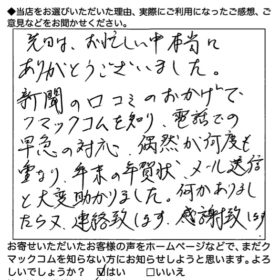 ◆当店をお選びいただいた理由、実際にご利用になったご感想、ご
意見などをお聞かせください。
先日は、お忙しい中本当に
ありがとうございました。
新聞の口コミのおかげで、
フマックコムを知り、電話での
早急の対応、偶然が何度も
重なり、年末の年賀状、メール送信
と大変助かりました。何かありまし
たら又、連絡致します。感謝致します
お寄せいただいたお客様の声をホームページなどで、まだク
マックコムを知らない方にお知らせしようと思います。よろ
しいでしょうか？ ☑はい □いいえ